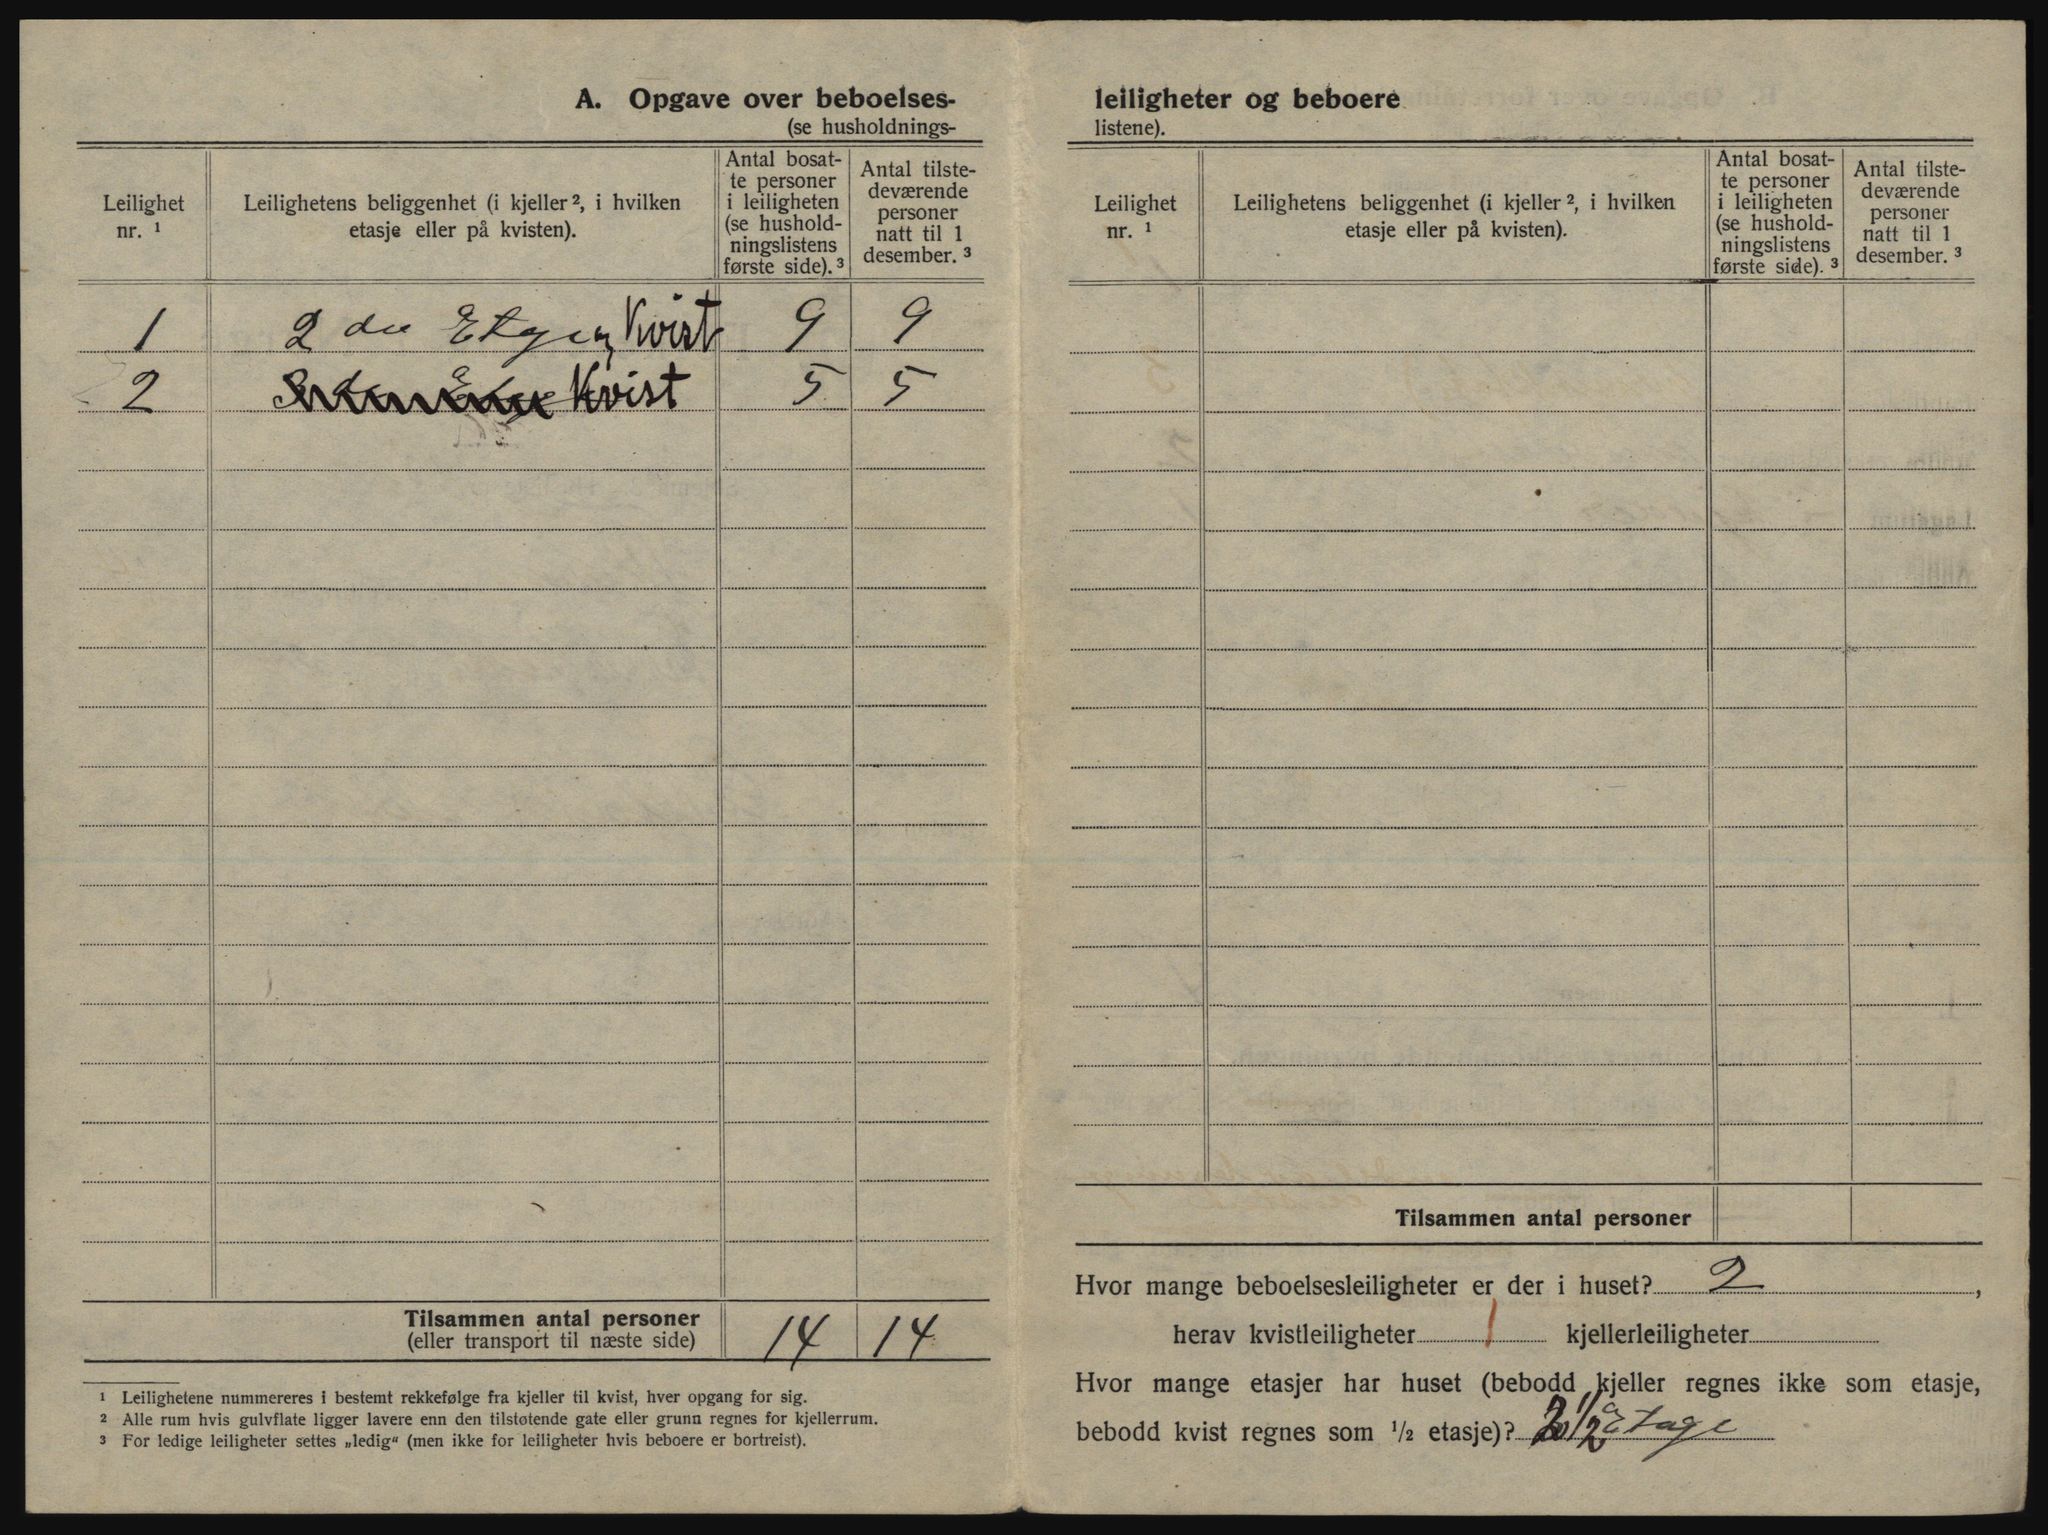 A. Opgave over beboelses-
(se husholdnings-
Leilighet nr. ¹
Leilighetens beliggenhet (i kjeller ², i hvilken etasje eller på kvisten).
Antal bosat-
te personer
i leiligheten
(se hushold-
ningslistens
første side). ³
Antal tilste-
deværende
personer
natt til 1
desember. ³
1 2 den Etage og Kvist 9 9
2 Kvist 5 5
Tilsammen antal personer
(eller transport til næste side) 14 14
¹ Leilighetene nummereres i bestemt rekkefølge fra kjeller til kvist, hver opgang for sig.
² Alle rum hvis gulvflate ligger lavere enn den tilstøtende gate eller grunn regnes for kjellerrum.
³ For ledige leiligheter settes „ledig“ (men ikke for leiligheter hvis beboere er bortreist).
leiligheter og beboere
listene).
Leilighet nr. ¹
Leilighetens beliggenhet (i kjeller ², i hvilken etasje eller på kvisten).
Antal bosat-
te personer
i leiligheten
(se hushold-
ningslistens
første side). ³
Antal tilste-
deværende
personer
natt til 1
desember. ³
Tilsammen antal personer
Hvor mange beboelsesleiligheter er der i huset? 2,
herav kvistleiligheter 1 kjellerleiligheter
Hvor mange etasjer har huset (bebodd kjeller regnes ikke som etasje,
bebodd kvist regnes som ½ etasje)? 2 1/2 Etage